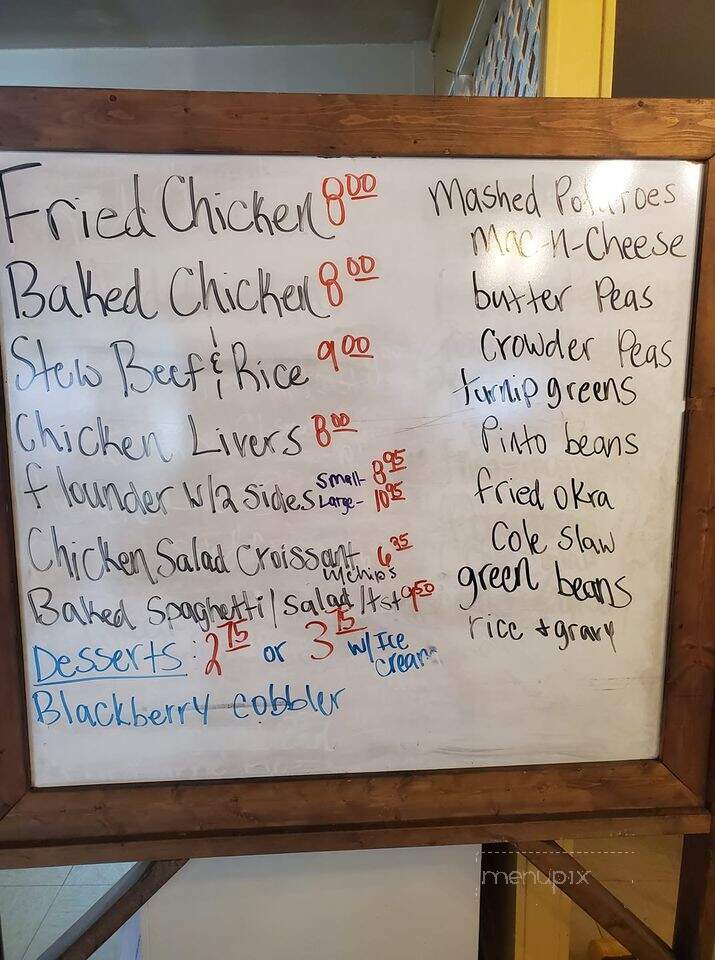 Fried Chicken 8.00
Baked Chicken 8.00
Stew Beef & Rice 9.00
Chicken Livers 8.00
flounder w/2 sides small- 8.95
Large- 10.95
Chicken Salad Croissant 6.35
w/chips
Baked Spaghetti/Salad/tst 9.50
Desserts: 2.75 or 3.75 w/Ice
Cream
Blackberry cobbler
Mashed Potatoes
Mac-n-Cheese
butter Peas
Crowder Peas
turnip greens
Pinto beans
fried okra
Cole Slaw
green beans
rice + gravy
menupix